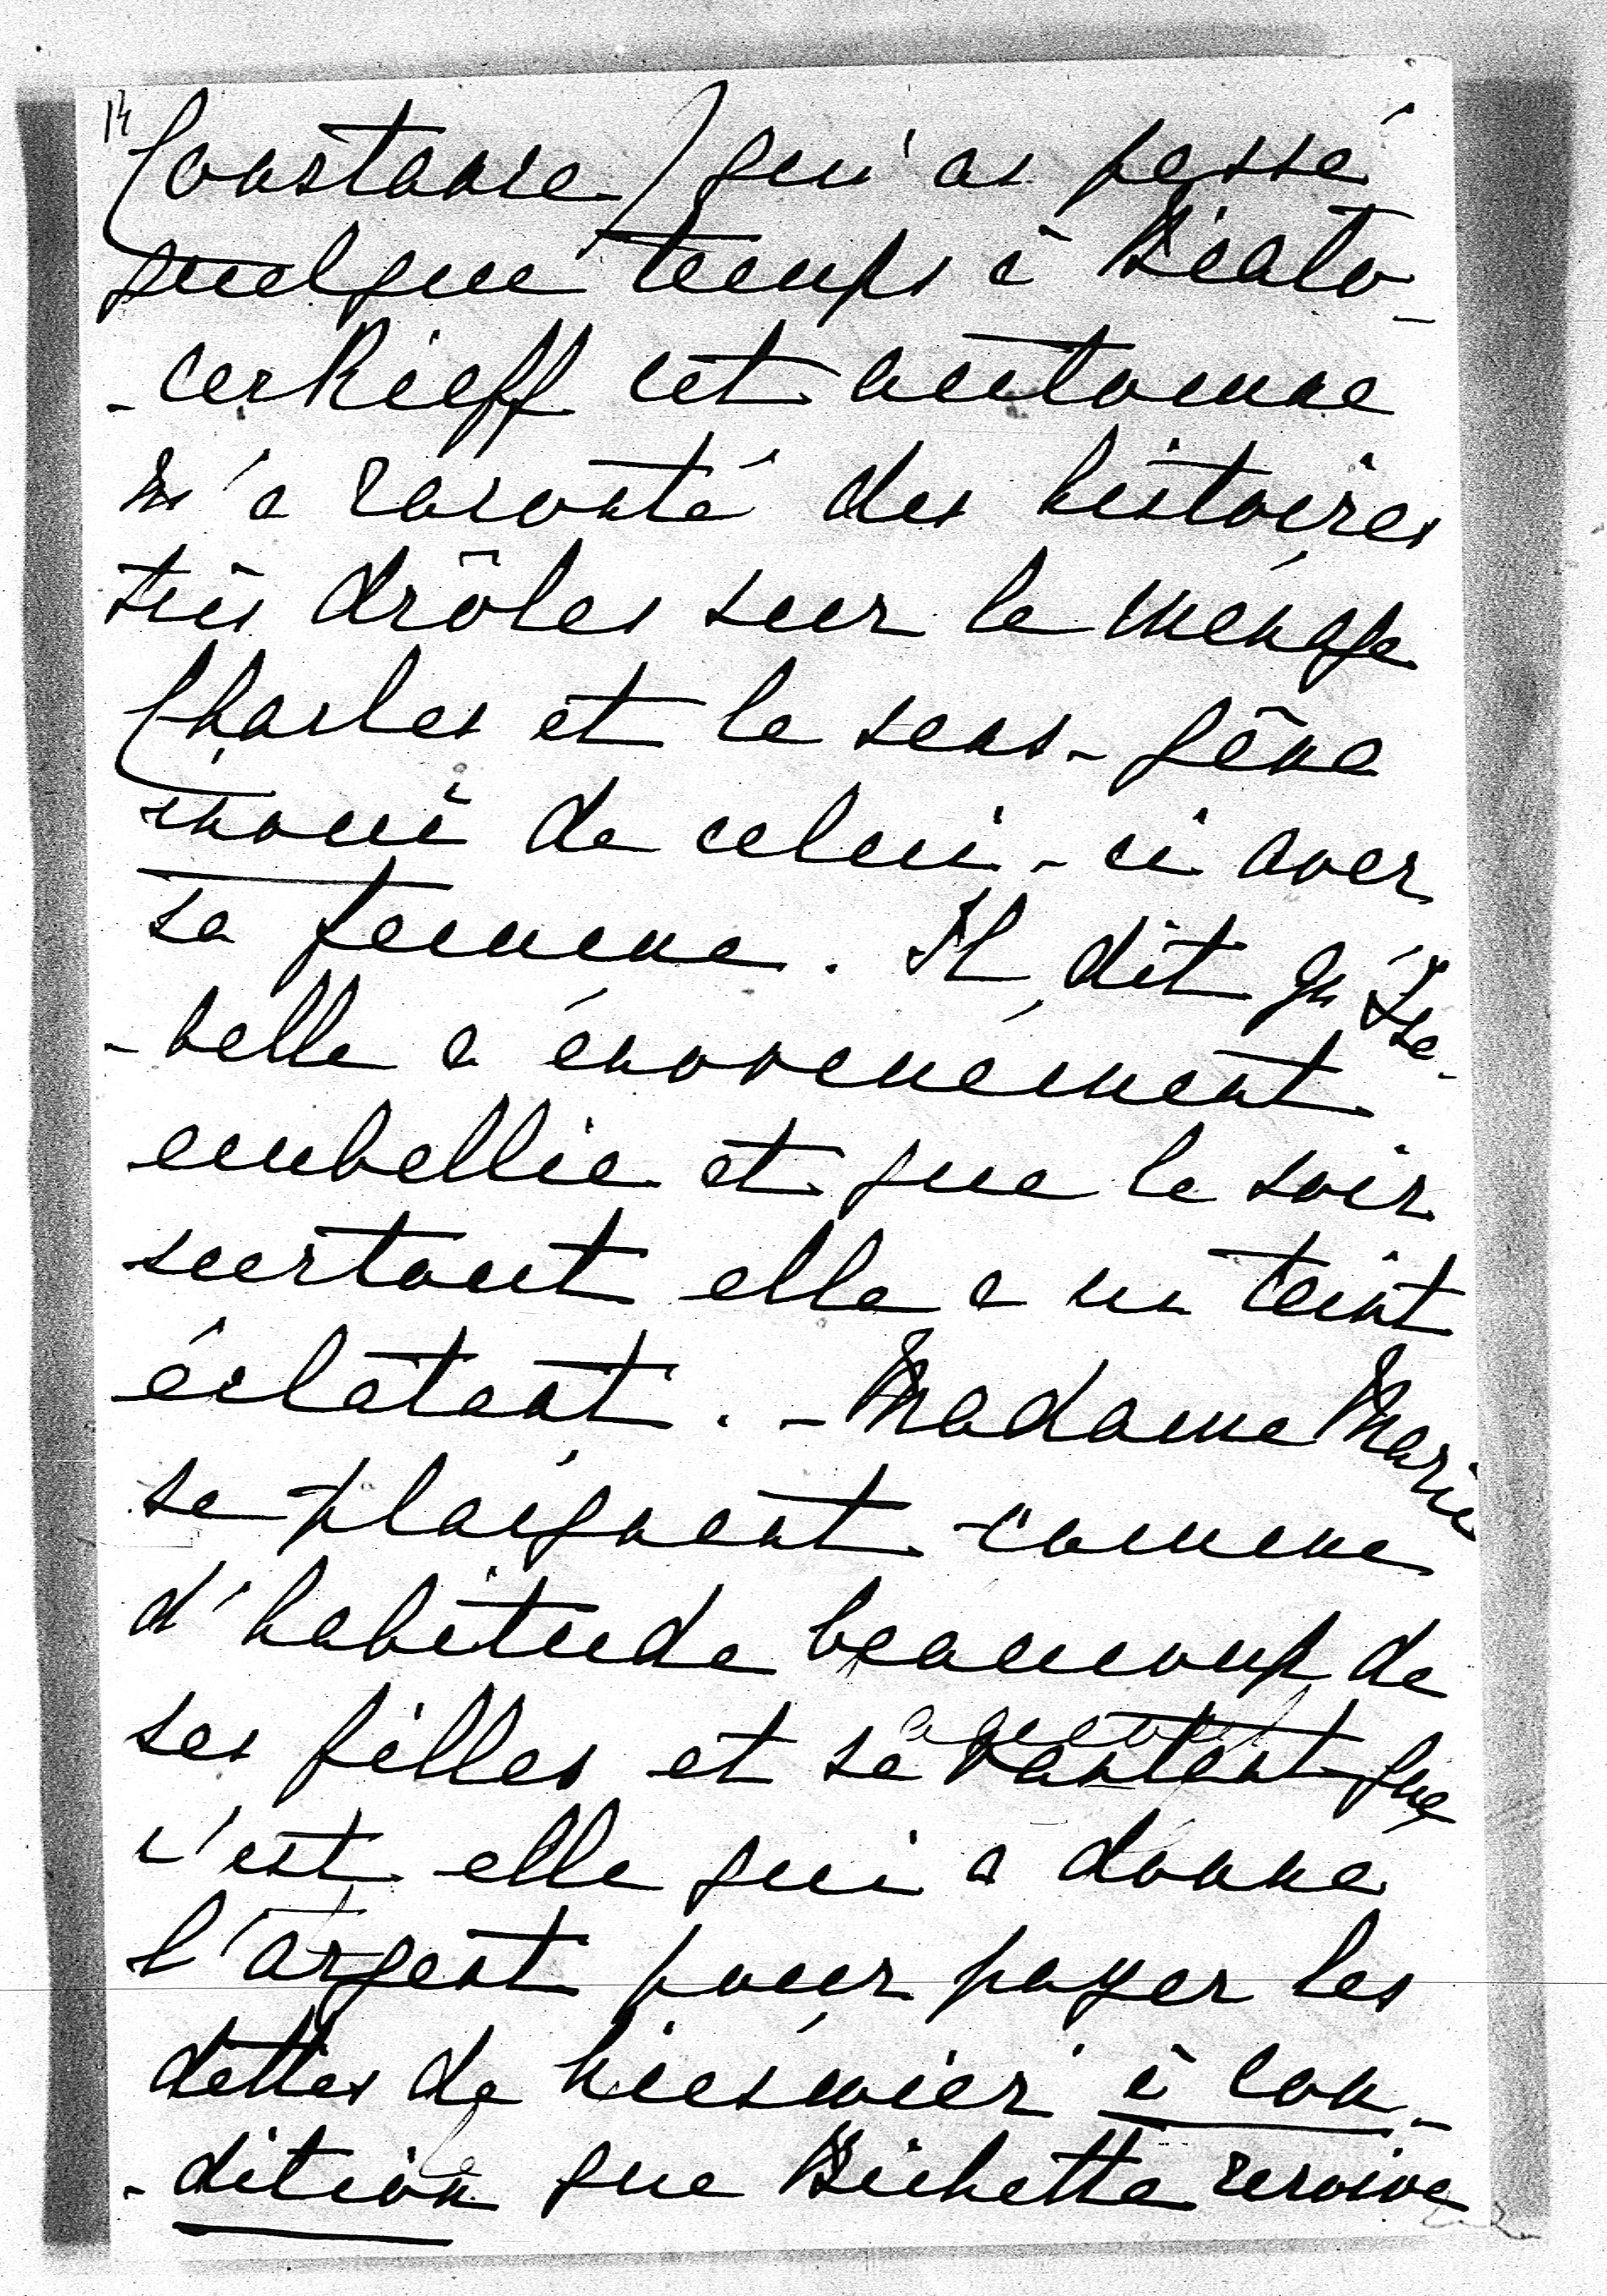 14
Constance / qui as passé
quelque temps à Biato-
-cerkieff cet automne
m'a raconté des histoires
très drôles sur le ménage
Charles et le sans-gêne
inoui de celui-ci avec
sa femme. Il dit qu'Isa-
-belle a énormément
embellie et que le soir
surtout elle a un teint
éclatant. - Madame Marie
se plaignent comme
d'habitude beaucoup de
ses filles et se vantent que
c'est elle qui a donné
l'argent pour payer les
dettes de à con-
-dition que Bichette reçoive